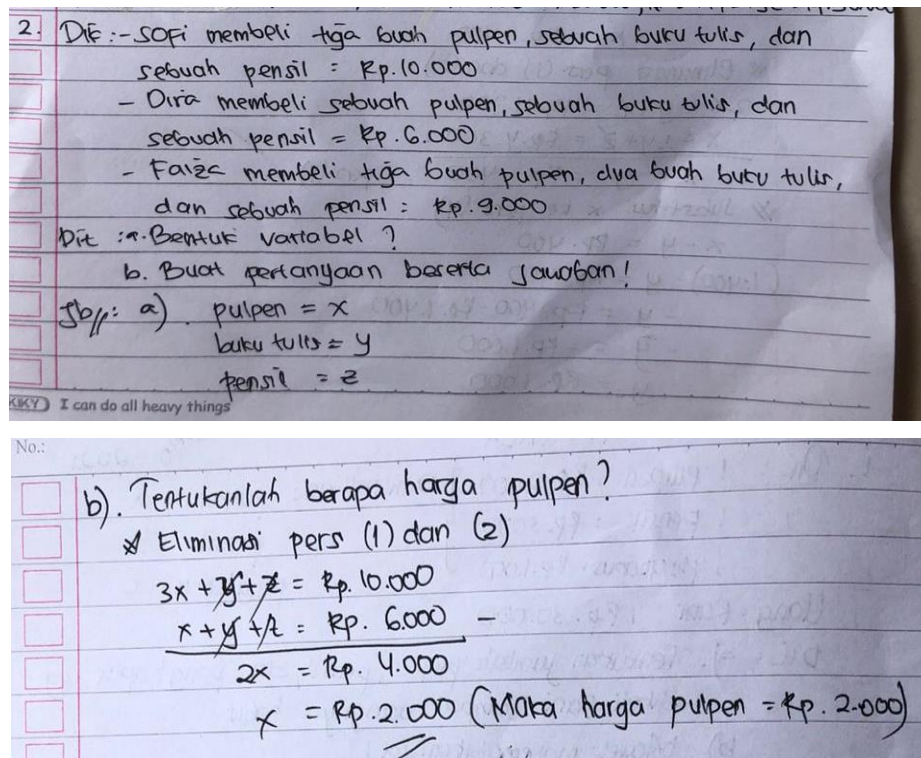 2. Dik :- Sofi membeli tiga buah pulpen, sebuah buku tulis, dan
sebuah pensil = Rp.10.000
- Dira membeli sebuah pulpen, sebuah buku tulis, dan
sebuah pensil = Rp.6.000
- Faiza membeli tiga buah pulpen, dua buah buku tulis,
dan sebuah pensil = Rp.9.000
Dit : a. Bentuk variabel ?
b. Buat pertanyaan beserta jawaban!
Jb//: a). pulpen = x
buku tulis = y
pensil = z
KIKY I can do all heavy things
No.:
b). Tentukanlah berapa harga pulpen?
* Eliminasi pers (1) dan (2)
3x + y + z = Rp. 10.000
x + y + z = Rp. 6.000 -
2x = Rp. 4.000
x = Rp. 2.000 (Maka harga pulpen = Rp. 2.000)